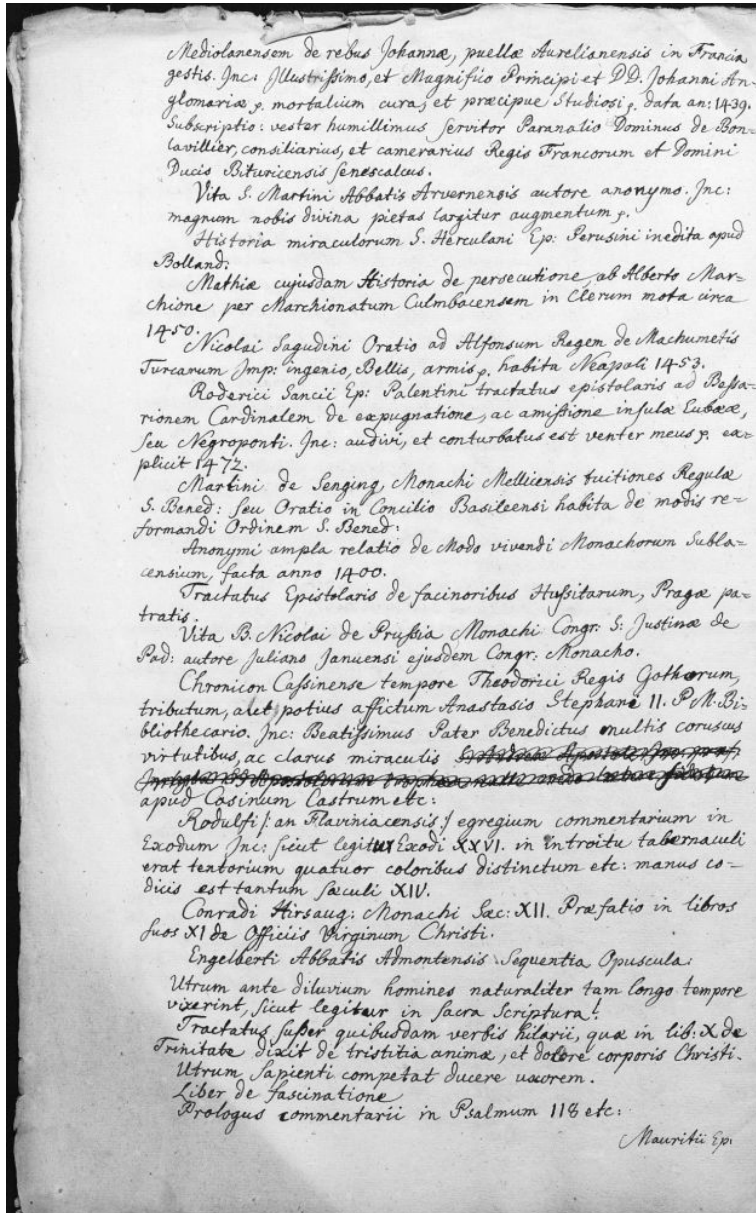 Mediolanensem de rebus Johannæ, puellæ Aurelianensis in Francia
gestis. Inc: Illustrissimo, et Magnifico Principi et DD. Johanni An-
glomariæ p. mortalium cura, et præcipue Studiosi p. data an: 1439.
Subscriptio: vester humillimus servitor Paranalio Dominus de Bon-
lavillier, consiliarius, et camerarius Regis Francorum et Domini
Ducis Bituricensis senescalcus.
Vita S. Martini Abbatis Arvernensis autore anonymo. Inc:
magnum nobis divina pietas largitur augmentum p.
Historia miraculorum S. Herculani Ep: Perusini inedita apud
Bolland:
Mathiæ cujusdam Historia de persecutione, ab Alberto Mar-
chione per Marchionatum Culmbacensem in Clerum mota circa
1450.
Nicolai Sagudini Oratio ad Alfonsum Regem de Machumetis
Turcarum Imp: ingenio, Bellis, armis p. habita Neapoli 1453.
Roderici Sancii Ep: Palentini tractatus epistolaris ad Bessa-
rionem Cardinalem de expugnatione, ac amissione insulæ Eubææ,
seu Negroponti. Inc: audivi, et conturbatus est venter meus p. ex-
plicit 1472.
Martini de Senging, Monachi Mellicensis tuitiones Regulæ
S. Bened: seu Oratio in Concilio Basileensi habita de modis re-
formandi Ordinem S. Bened:
Anonymi ampla relatio de Modo vivendi Monachorum Subla-
censium, facta anno 1400.
Tractatus Epistolaris de facinoribus Hussitarum, Pragæ pa-
tratis.
Vita B. Nicolai de Prussia Monachi Congr: S: Justinæ de
Pad: autore Juliano Januensi ejusdem Congr: Monacho.
Chronicon Cassinense tempore Theodorici Regis Gothorum,
tributum, aut potius affictum Anastasio Stephani II. P.M. Bi-
bliothecario. Inc: Beatissimus Pater Benedictus multis coruscus
virtutibus, ac clarus miraculis
apud Casinum Castrum etc:
Rodulfi /: an Flaviniacensis :/ egregium commentarium in
Exodum Inc: sicut legitur Exodi XXVI. in introitu tabernaculi
erat tentorium quatuor coloribus distinctum etc: manus co-
dicis est tantum sæculi XIV.
Conradi Hirsaug: Monachi Sæc: XII. Præfatio in libros
suos XI de Officiis Virginum Christi.
Engelberti Abbatis Admontensis Sequentia Opuscula:
Utrum ante diluvium homines naturaliter tam longo tempore
vixerint, sicut legitur in sacra Scriptura!
Tractatus super quibusdam verbis hilarii, quæ in lib: X de
Trinitate dixit de tristitia animæ, et dolore corporis Christi.
Utrum sapienti competat ducere uxorem.
Liber de fascinatione
Prologus commentarii in Psalmum 118 etc:
Mauritii Ep: